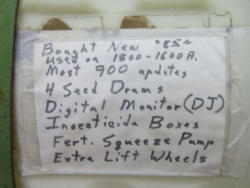 Bought New "85"
Used on 1500-1600A.
Most 900 updates
4 Seed Drums
Digital Monitor (DJ)
Insecticide Boxes
Fert. Squeeze Pump
Extra Lift Wheels